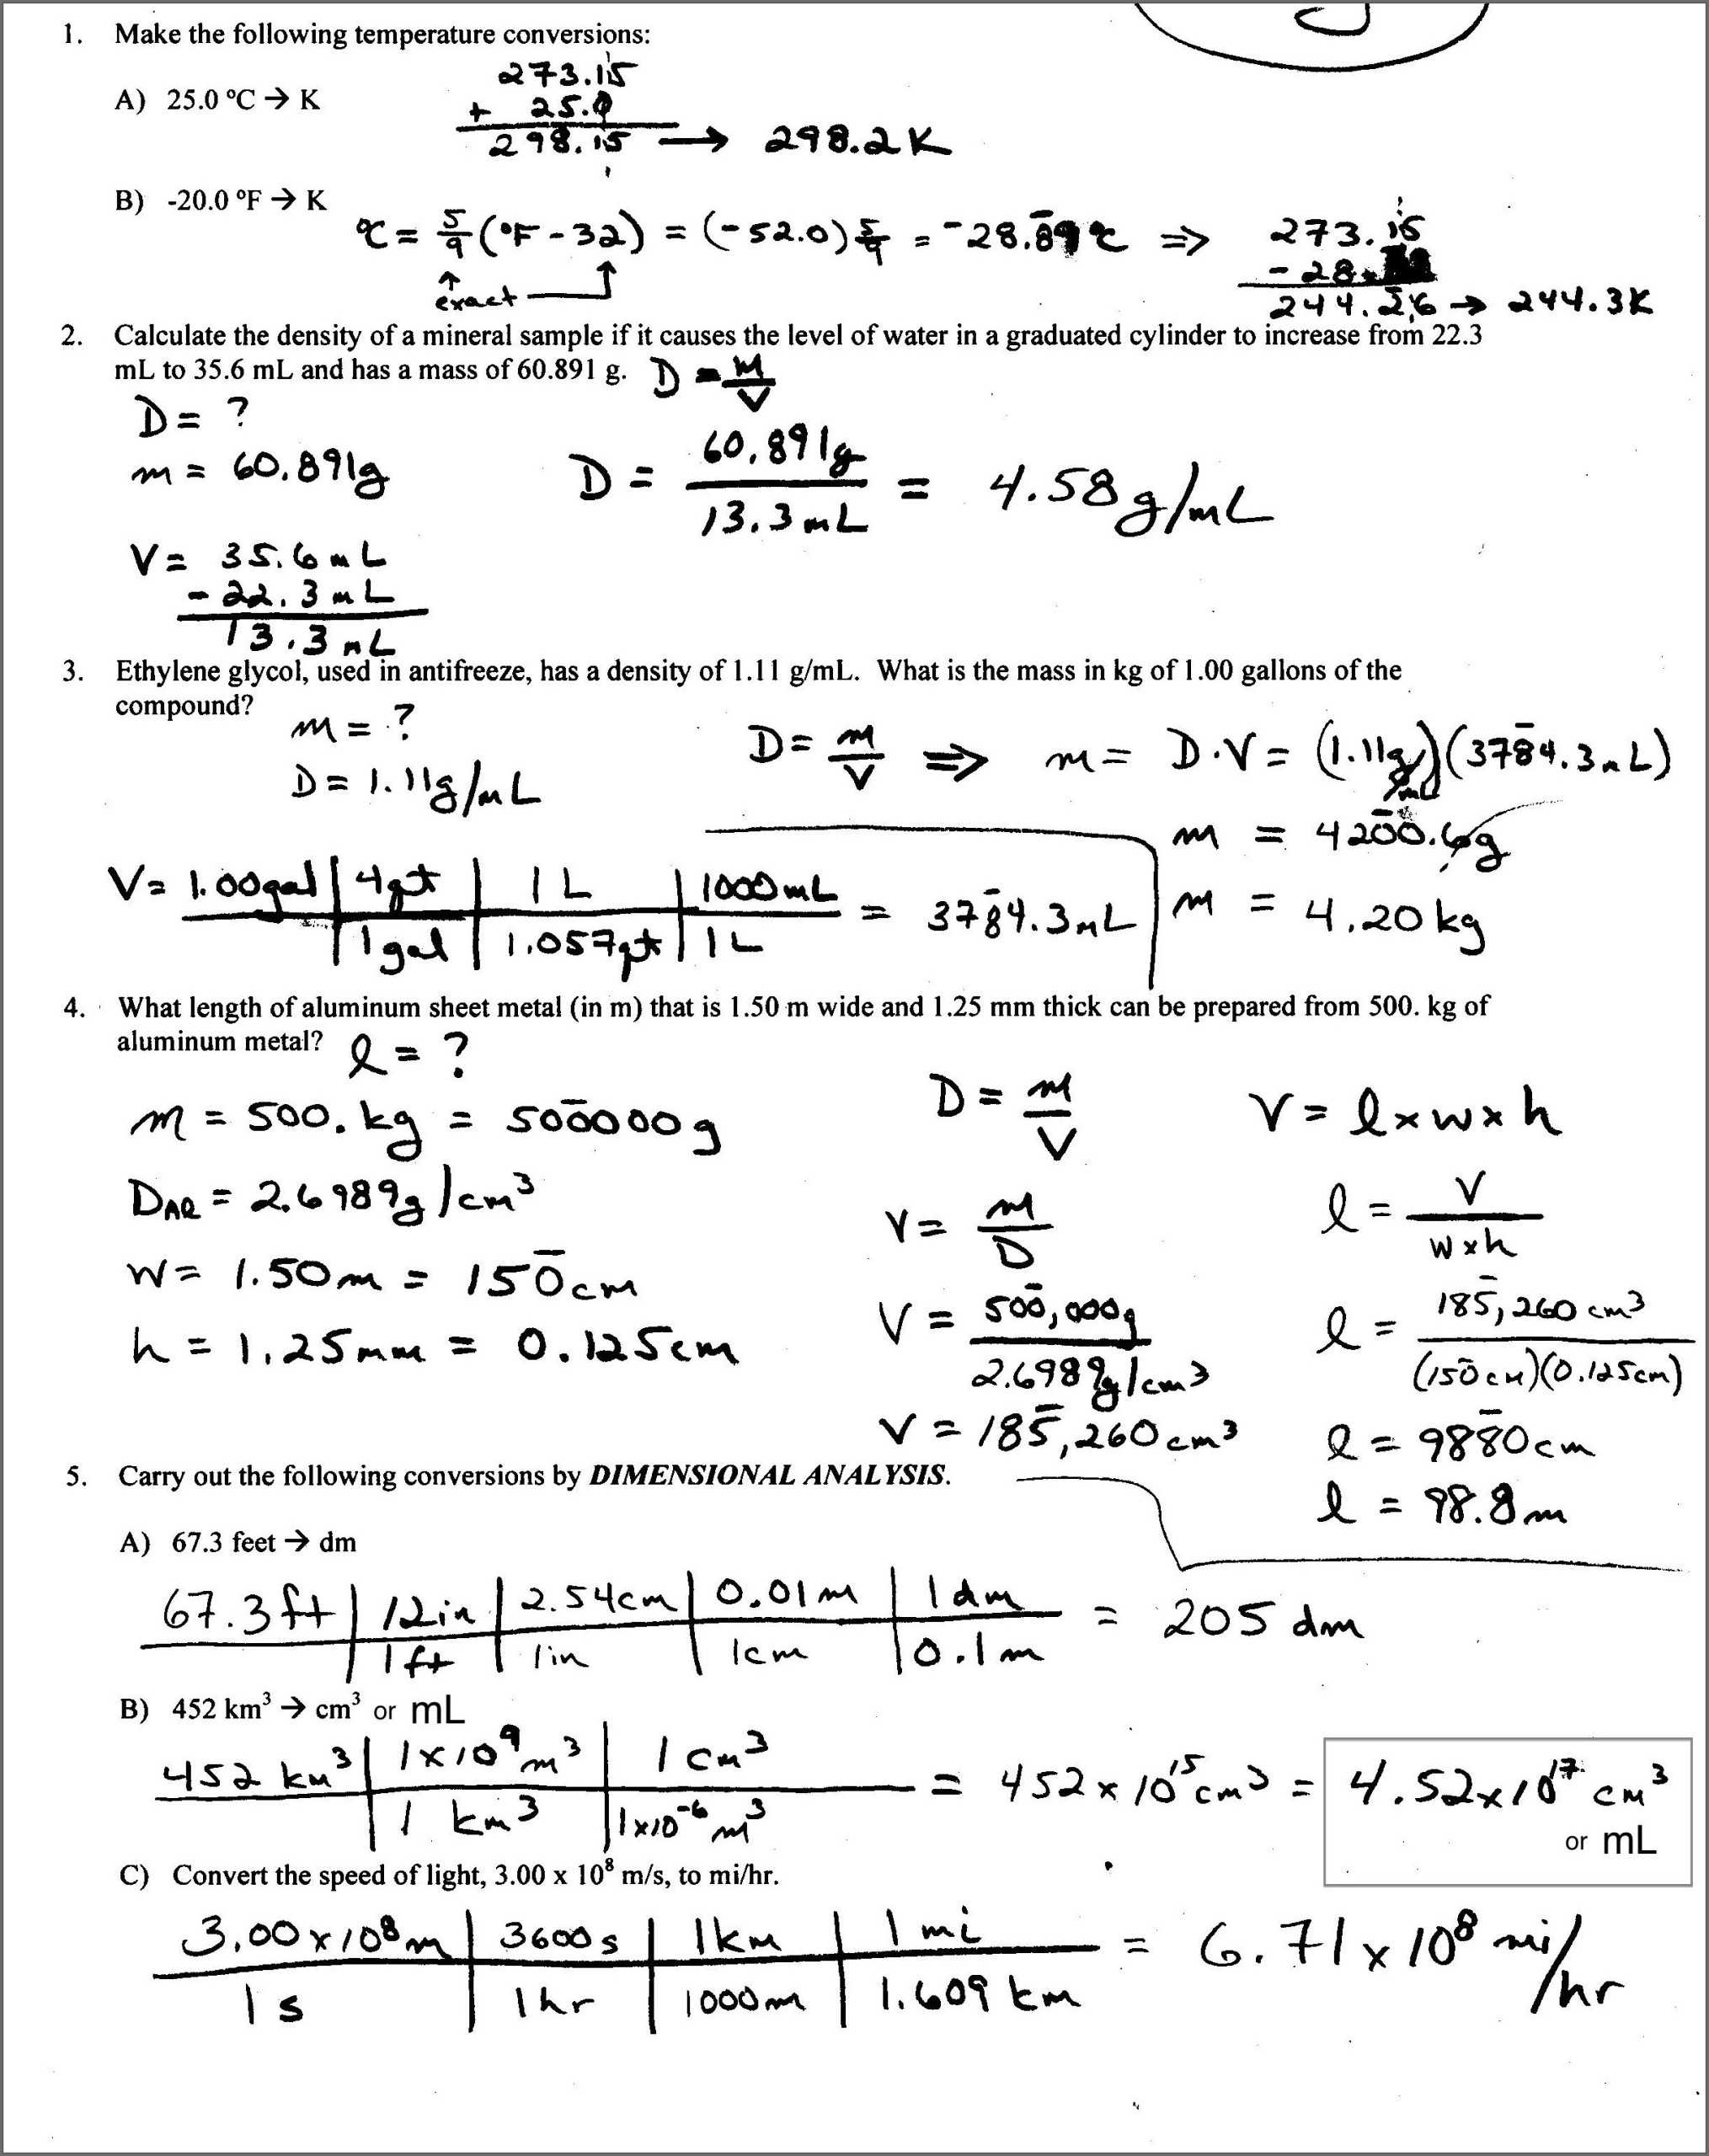 1. Make the following temperature conversions:
273.15
A) 25.0 ºC → K
+ 25.0
298.15 → 298.2K
B) -20.0 ºF → K
ºC = 5/9 (ºF - 32) = (-52.0) 5/9 = -28.89 ºC ⇒ 273.15
exact
- 28.
244.26 → 244.3K
2. Calculate the density of a mineral sample if it causes the level of water in a graduated cylinder to increase from 22.3
mL to 35.6 mL and has a mass of 60.891 g. D = m/V
D = ?
m = 60.891g
D = 60.891g / 13.3 mL = 4.58 g/mL
V = 35.6 mL
- 22.3 mL
13.3 mL
3. Ethylene glycol, used in antifreeze, has a density of 1.11 g/mL. What is the mass in kg of 1.00 gallons of the
compound?
m = ?
D = 1.11g/mL
D = m/V ⇒ m = D·V = (1.11g/mL)(3784.3mL)
m = 4200.6g
V = 1.00gal | 4qt | 1 L | 1000mL
1gal | 1.057qt | 1L
= 3784.3mL
m = 4.20kg
4. What length of aluminum sheet metal (in m) that is 1.50 m wide and 1.25 mm thick can be prepared from 500. kg of
aluminum metal? l = ?
m = 500. kg = 500000g
D = m/V
V = l x w x h
DAl = 2.6989g/cm³
V = m/D
l = V / w x h
w = 1.50m = 150cm
V = 500,000g / 2.6989g/cm³
l = 185,260 cm³ / (150cm)(0.125cm)
h = 1.25mm = 0.125cm
V = 185,260cm³
l = 9880cm
l = 98.8m
5. Carry out the following conversions by DIMENSIONAL ANALYSIS.
A) 67.3 feet → dm
67.3ft | 12in | 2.54cm | 0.01m | 1dm
1ft | 1in | 1cm | 0.1m
= 205 dm
B) 452 km³ → cm³ or mL
452 km³ | 1x10⁹ m³ | 1 cm³
1 km³ | 1x10⁻⁶ m³
= 452 x 10¹⁵ cm³ = 4.52x10¹⁷ cm³
or mL
C) Convert the speed of light, 3.00 x 10⁸ m/s, to mi/hr.
3.00 x 10⁸m | 3600s | 1km | 1 mi
1 s | 1hr | 1000m | 1.609 km
= 6.71 x 10⁸ mi/hr